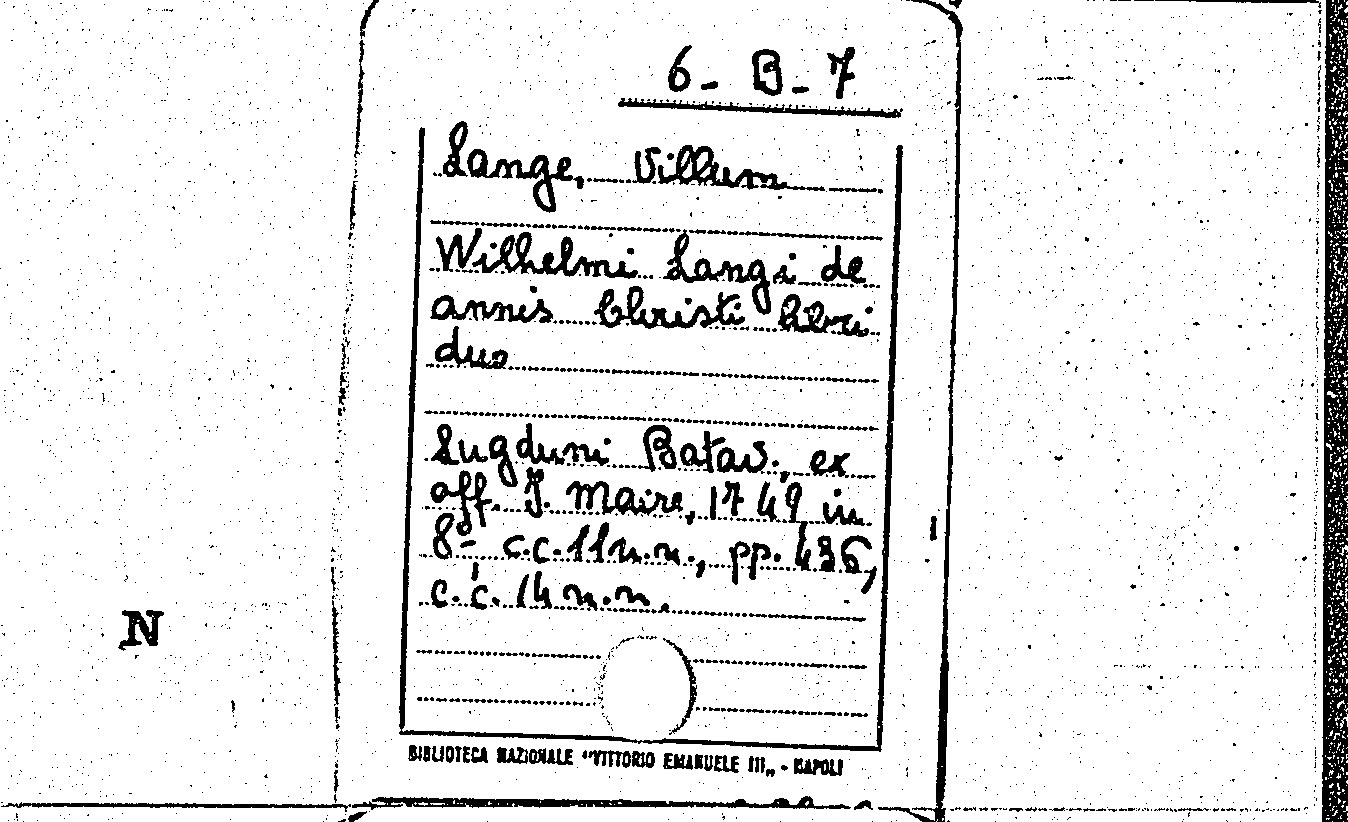 6 - B - 7
Lange, Villum
Wilhelmi Langi de
annis Christi libri
duo
Lugduni Batav., ex
off. J. Maire, 1749 in
8º c.c. 11 n.n., pp. 436,
c.c. 14 n.n.
N
BIBLIOTECA NAZIONALE "VITTORIO EMANUELE III„ - NAPOLI